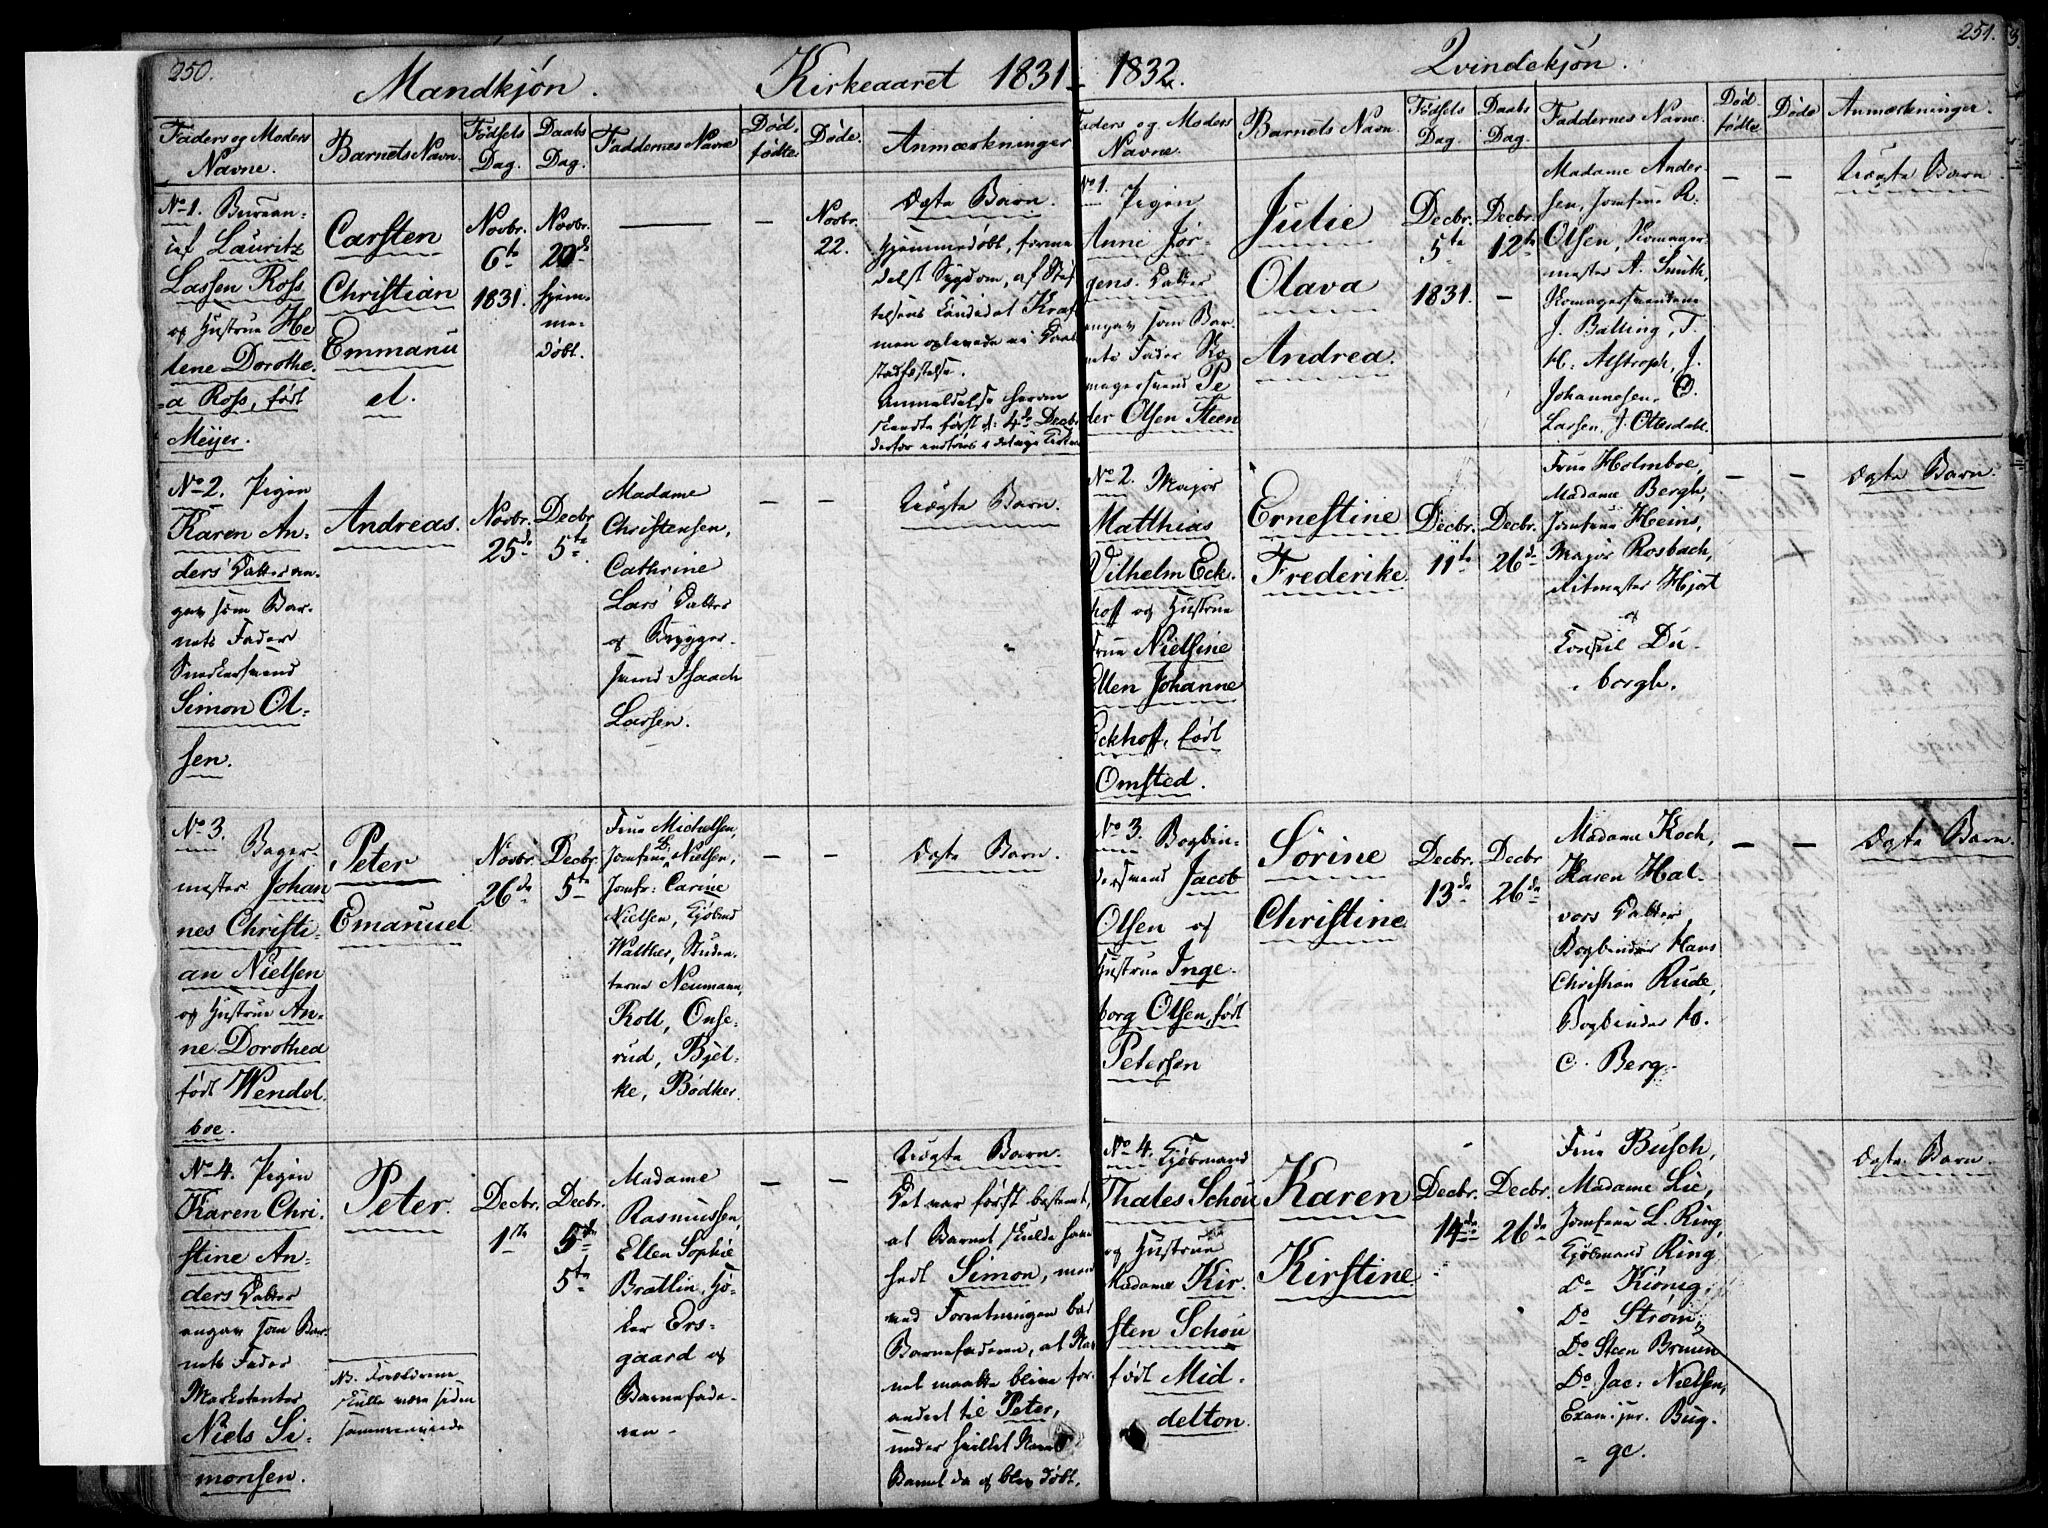 250.
Mandkjön. Kirkeaaret 1831-
Faders og Moders Navne.
Barnets Navn.
Födsels Dag.
Daabs Dag.
Faddernes Navne
Död-födte
Döde.
Anmærkninger
No 1. Bureau-
Lauritz
Lassen Ross
og Hustrue He
lene Dorothe-
a Ross, født
Meyer.
Carsten
Christian
Emmanu
el.
Novbr.
6te
1831.
Novbr.
20de
hjem-
me-
döbt.
—
—
Novbr.
22.
Ægte Barn.
Hjemmedöbt, forme
delst Sygdom, af Stif
telsens Candidat Kraft
men oplevede ei Daab
stadfæstelse.
Anmeldelse herom
skeedte først d: 4de Decbr.
No 2. Pigen
Karen An-
ders Datter an-
gav som Bar-
nets Fader
Snedkersvend
Simon Ol-
sen.
Andreas.
Novbr.
25de
Decbr
5te
Madame
Christensen,
Cathrine
Lars Datter
og Brygger-
svend Isaach
Larsen.
—
—
Uægte Barn.
No 3.
Bager-
mester Johan
nes Christi-
an Nielsen
og Hustrue An-
ne Dorothea
født Wendel-
boe.
Peter
Emanuel
Novbr.
26de
Decbr.
5te
Frue Michelsen,
Jomfrue Nielsen,
Jomfr: Carine
Nielsen, Kjöbmd
Walther, Studen-
terne Neumann,
Roll, Onse-
rud, Bjel-
ke, Bödker.
—
—
Ægte Barn.
No 4. Pigen
Karen Chri-
stine An-
ders Datter
angav som Bar-
nets Fader
Marketenter
Niels Si-
monsen.
Peter.
NB. Forældrene
skulle være siden
sammenviede
Decbr.
1te
Decbr.
5te
5te
Madame
Rasmussen,
Ellen Sophie
Bratlin,
Ers-
gaard og
Barnefade-
ren -
—
—
Uægte Barn.
Det var først bestemt,
at Barnet skulde have
hedt Simon, men
ved Forretningen bad
Barnefaderen, at Nav
net maatte blive for-
andret til Peter,
under hvilket Navn
Barnet da og blev döbt.
1832. Qvindekjön.
251.
Faders og Moders Navne.
Barnets Navn
Födsels Dag.
Daabs Dag.
Faddernes Navne.
Död födte
Döde
Anmærkninger
No 1.
Pigen
Anne Jör-
gens Datter
angav som Bar-
nets Fader Ko
magersvend Pe
der Olsen Steen
Julie
Olava
Andrea.
Decbr.
5te
1831.
Decbr.
12te
—
Madame Ander-
sen, Jomfrue R.
Olsen, Komager-
mester A. Smith,
Komagersvendene
J. Balling, T.
H. Alstroph, J.
Johannesen, O.
Larsen, J. Ottesdahl.
—
—
Uægte Barn
No 2. Major
Matthias
Vilhelm Eck-
hoff og Hustrue
Frue Nielsine
Ellen Johanne
Eckhoff, født
Omsted.
Ernestine
Frederike
Decbr.
11te
Decbr.
26de
Frue Holmboe,
Madame Bergh,
Jomfrue Heins,
Major Rosbach,
Ritmester Hjort
og
Consul Du-
borgh.
—
—
Ægte Barn.
No 3. Bogbin-
dersvend Jacob
Olsen og
Hustrue Inge-
borg Olsen, født
Petersen
Sörine
Christine
Decbr.
13de
Decbr
26de
Madame Koch,
Karen Hal-
vors Datter,
Bogbinder Hans
Christian Rude,
Bogbinder H.
C. Berg.
—
—
Ægte Barn.
No 4. Kjöbmand
Thales Schou
og Hustrue
Madame Kir-
sten Schou
født Mid-
delton.
Karen
Kirstine
Decbr.
14de
Decbr.
26de
Frue Busch,
Madame Lie,
Jomfrue L. Ring,
Kjöbmand Ring,
Do Kiönig,
Do Ström,
Do Steen Bruun
Do Jac: Nielsen,
Exam: jur. Bug-
ge.
Ægte Barn.